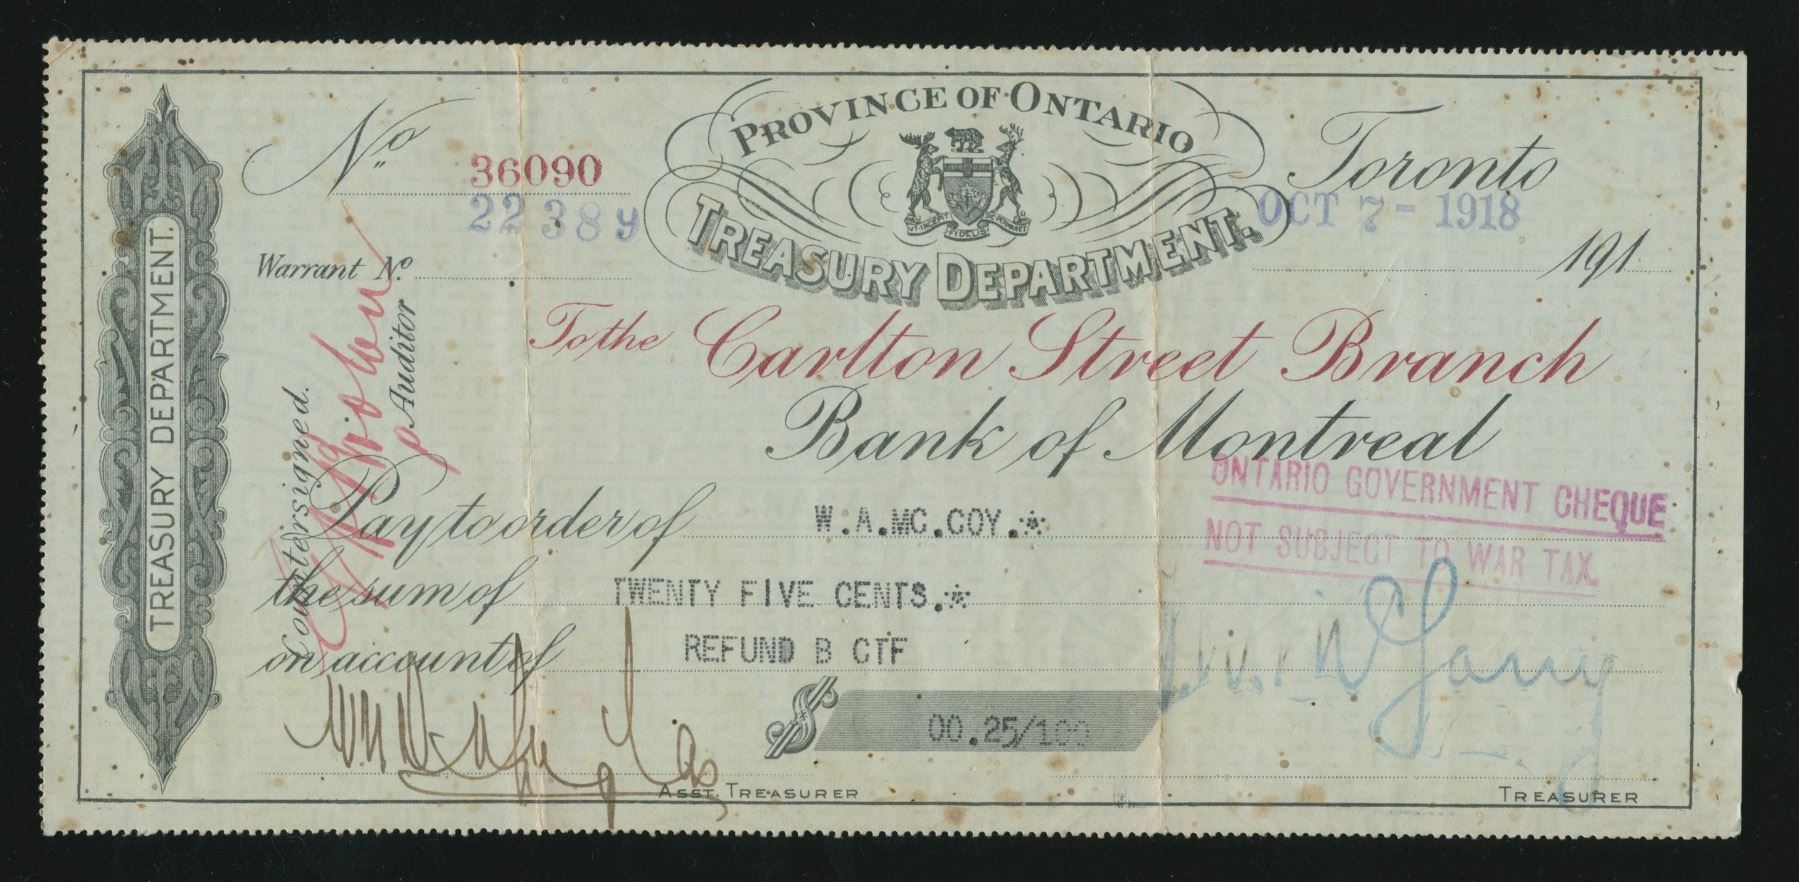 TREASURY DEPARTMENT.
No 36090
22389
Warrant No
PROVINCE OF ONTARIO
UT INCEPIT FIDELIS SIC PERMANET
TREASURY DEPARTMENT.
Toronto
OCT 7 - 1918
191
To the Carlton Street Branch
Bank of Montreal
Countersigned.
p Auditor
ONTARIO GOVERNMENT CHEQUE
NOT SUBJECT TO WAR TAX.
Pay to order of W.A.MC.COY.*
the sum of TWENTY FIVE CENTS.*
on account of REFUND B CTF
$ 00.25/100
ASST. TREASURER
TREASURER